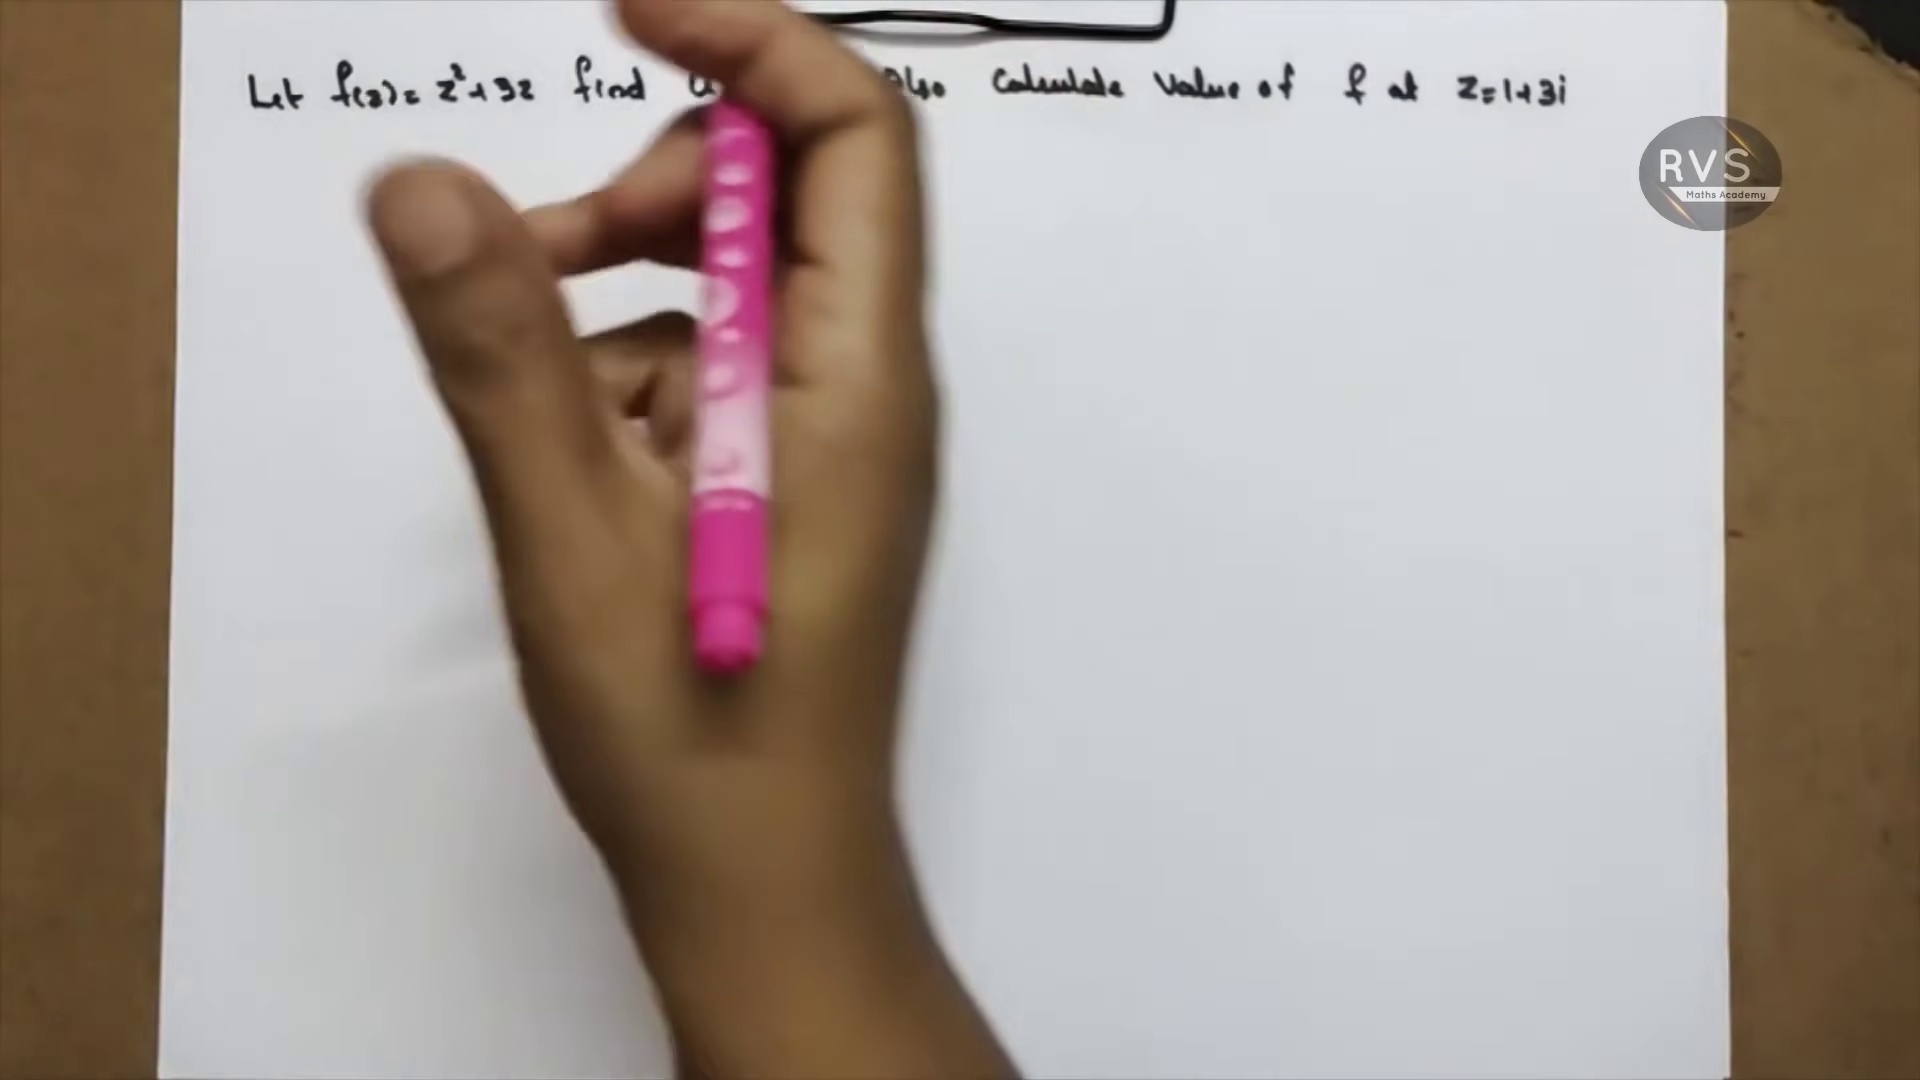 Let f(z)= z²+3z find Also Calculate Value of f at z=1+3i
RVS
Maths Academy